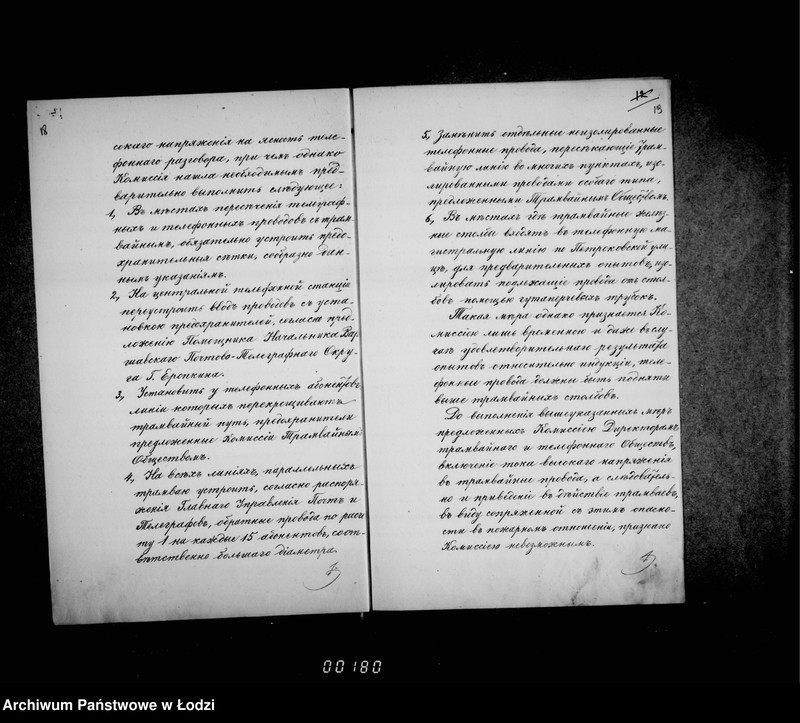 18
сокаго напряженія на ясность теле-
фоннаго разговора, при чемъ однако
Комиссія нашла необходимымъ пред-
варительно выполнить слѣдующее:
1, Въ мѣстахъ пересѣченія телеграф-
ныхъ и телефонныхъ проводовъ съ трам-
вайнымъ, обязательно устроить предо-
хранительныя сѣтки, сообразно дан-
нымъ указаніямъ.
2, На центральной телефонной станціи
переустроить вводъ проводовъ съ уста-
новкою предохранителей, согласно пред-
ложенію Помощника Начальника Вар-
шавскаго Почтово-Телеграфнаго Окру-
га Г. Еропкина.
3, Установить у телефонныхъ абонентовъ
линіи которыхъ перекрещиваютъ
трамвайный путь, предохранители
предложенные Комиссіи Трамвайнымъ
Обществомъ.
4, На всѣхъ линіяхъ, параллельныхъ
трамваю устроить, согласно распоря-
женія Главнаго Управленія Почтъ и
Телеграфовъ, обратные провода по расче-
ту 1 на каждые 15 абонентовъ, соот-
вѣтственно большаго діаметра.
12
13
5, Замѣнить отдѣльные неизолированные
телефонные провода, пересѣкающіе трам-
вайную линію во многихъ пунктахъ, изо-
лированными проводами особаго типа,
предложенными Трамвайнымъ Обществомъ.
6, Въ мѣстахъ гдѣ трамвайные желѣз-
ные столбы входятъ въ телефонную ма-
гистральную линію по Петроковской ули-
цѣ, для предварительныхъ опытовъ, изо-
лировать подлежащіе провода отъ стол-
бовъ помощью гутаперчевыхъ трубокъ.
Такая мѣра однако признается Ко-
миссіею лишь временною и даже въ слу-
чаѣ удовлетворительнаго результата
опытовъ относительно индукціи, теле-
фонные провода должны быть подняты
выше трамвайныхъ столбовъ.
До выполненія вышеуказанныхъ мѣръ
предложенныхъ Комиссіею Директорамъ
трамвайнаго и телефоннаго Обществъ,
включеніе тока высокаго напряженія
въ трамвайные провода, а слѣдователь-
но и приведеніе въ дѣйствіе трамваевъ,
въ виду сопряженной съ этимъ опасно-
сти въ пожарномъ отношеніи, признано
Комиссіею невозможнымъ.
00180
Archiwum Państwowe w Łodzi